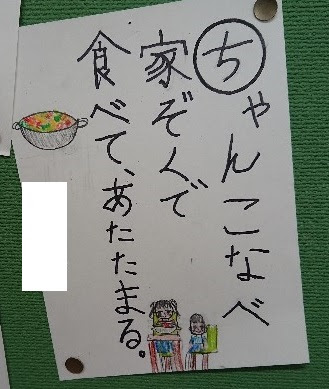 ちゃんこなべ
家ぞくで
食べて、あたたまる。